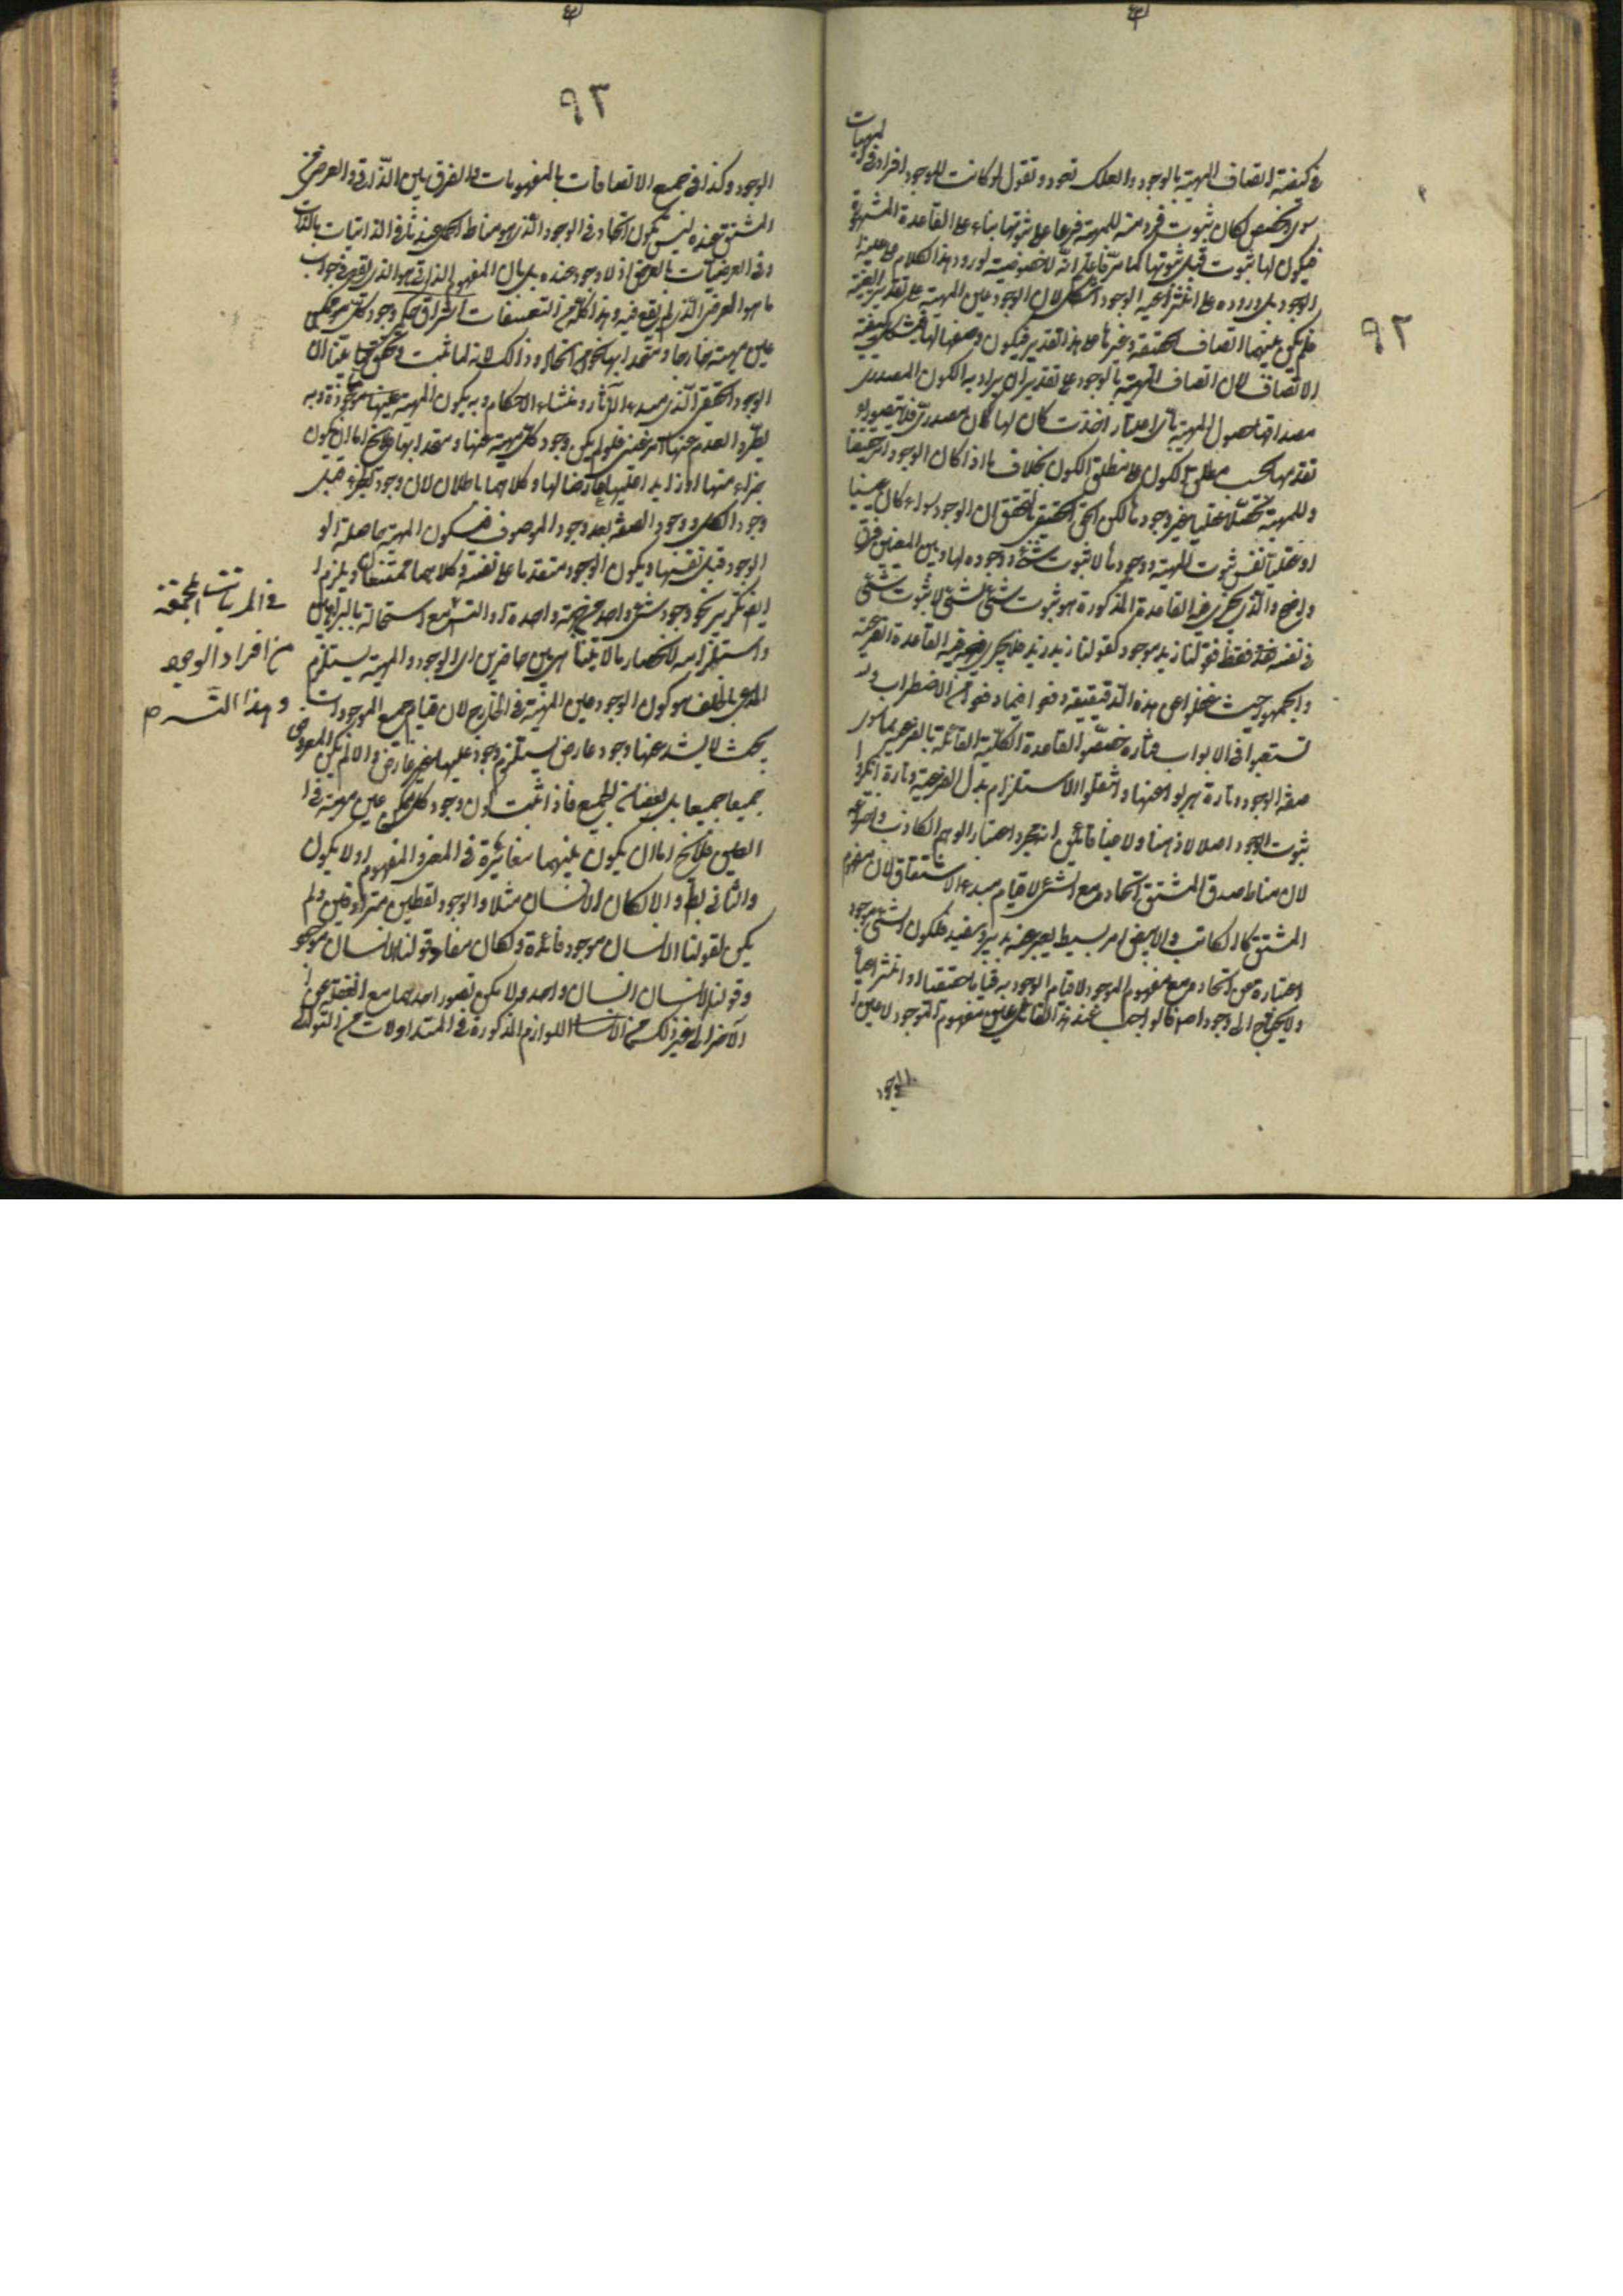 فى كيفية اتصاف المهية بالوجود ولعلك تعود وتقول لو كانت للوجود افراد فى المهيات
سوى الحصص لكان ثبوت فرد منه للمهية فرعا على ثبوتها بناء على القاعدة المشهورة
فيكون لها ثبوت قبل ثبوتها كما مر فاعلم انه لا خصوصية لورود هذا الكلام على عينية
الوجود بل وروده على انتزاعية الوجود اشكل لان الوجود عين المهية على تقدير العينية
فلم يكن بينهما اتصاف بالحقيقة وغيرها على هذا التقدير فيكون وصفها لها فيشكل كيفية
الاتصاف لان اتصاف المهية بالوجود على تقدير ان يراد به الكون المصدرى
مصداقها حصول المهية باى اعتبار اخذت كان لها كون مصدرى فلا يتصور
تقدمها بحسب مطلق الكون على مطلق الكون بخلاف ما اذا كان الوجود امرا حقيقيا
وللمهية تحصلا عقليا غير وجودها لكن الحق الحقيق بالتحقق ان الوجود سواء كان عينيا
او عقليا نفس ثبوت المهية ووجودها لا ثبوت شئ او وجوده لها وبين المعنيين فرق
واضح والذى يجرى فيه القاعدة المذكورة هو ثبوت شئ لشئ لا ثبوت شئ
فى نفسه فقط فقولنا زيد موجود كقولنا زيد زيد فلا يجرى فيه القاعدة الفرعية
والجمهور حيث غفلوا عن هذه الدقيقة وقعوا فيما وقعوا من الاضطراب و
تشعبوا فى الابواب فتارة خصصوا القاعدة الكلية القائلة بالفرعية بما سوى
صفة الوجود وتارة هربوا عنها وانتقلوا الى الاستلزام بدل الفرعية وتارة انكروا
ثبوت الوجود اصلا لا ذهنا ولا عينا قائلين انه مجرد اعتبار الوهم الكاذب واختراعه
لان مناط صدق المشتق اتحاده مع الشئ لا قيام مبدء الاشتقاق لان مفهوم
المشتق كالكاتب والابيض امر بسيط يعبر عنه بدبير وسفيد فكون الشئ موجودا
عبارة عن اتحاده مع مفهوم الموجود لا قيام الوجود به قياما حقيقيا او انتزاعيا
ولا يحتاج الى وجود اصلا فالواجب عند هذا القائل عين مفهوم الموجود لا عين
الوجود
٩٢
٩٣
الوجود وكذا فى جميع الاتصافات بالمفهومات والفرق بين الذاتى والعرضى
المشتق عنده ليس بكون اتحاد فى الوجود الذى هو مناط الحمل عندنا فى الذاتيات بالذات
وفى العرضيات بالعرض اذ لا وجود عنده بل بان المفهوم الذاتى هو الذى يقع فى جواب
ما هو العرضى الذى لم يقع فيه وهذا كله من التعسفات اشراق حكمى وجود كل ممكن
عين مهيته خارجا ومتحد بها نحوا من الاتحاد وذلك لانه لما ثبت وتحقق بما بينا ان
الوجود الحقيقى الذى هو مبدء الآثار ومنشاء الاحكام وبه يكون المهية موجودة وبه
يطرد العدم عنها امر عينى فلو لم يكن وجود كل مهية عينها ومتحدا بها فلا يخ اما ان يكون
جزءا منها او زايدا عليها عارضا لها وكلاهما باطلان لان وجود الجزء قبل
وجود الكل ووجود الصفة بعد وجود الموصوف فيكون المهية حاصلة الو
الوجود قبل نفسها ويكون الوجود متقدما على نفسه وكلاهما ممتنعان ويلزم
ايضا تكرير نحو وجود شئ واحد من جهة واحدة او التس مع استحالته بالبراهين
واستلزامه لانحصار ما لا يتناهى بين حاصرين اى الوجود والمهية يستلزم
المدعى بالخلف هو كون الوجود عين المهية فى الخارج لان قيام جميع الموجودات
بحيث لا يشذ عنها وجود عارض يستلزم وجودا عليها غير عارض والا لم يكن المعروض
جميعا جميعا بل بعضا من الجميع فاذا ثبت كون وجود كل ممكن عين مهيته فى
العين فلا يخ اما ان يكون بينهما مغايرة فى المعنى والمفهوم او لا يكون
والثانى بط والا لكان الانسان مثلا والوجود لفظين مترادفين ولم
يكن لقولنا الانسان موجود فائدة ولكان مفاد قولنا الانسان موجود
وقولنا الانسان انسان واحد ولا يمكن تصور احدهما مع الغفلة عن
الآخر الى غير ذلك من اللوازم المذكورة فى المتداولات من التوالى
فى المرتبات المجتمعة
من افراد الوجود
وهذا التس مع